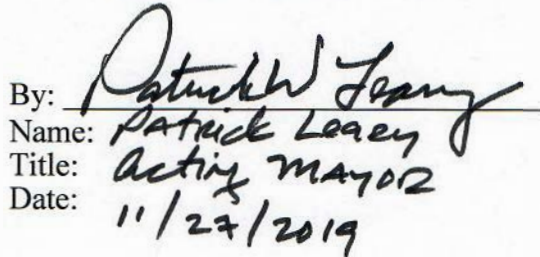 By: Patrick W Leary
Name: Patrick Leary
Title: Acting Mayor
Date: 11/27/2019